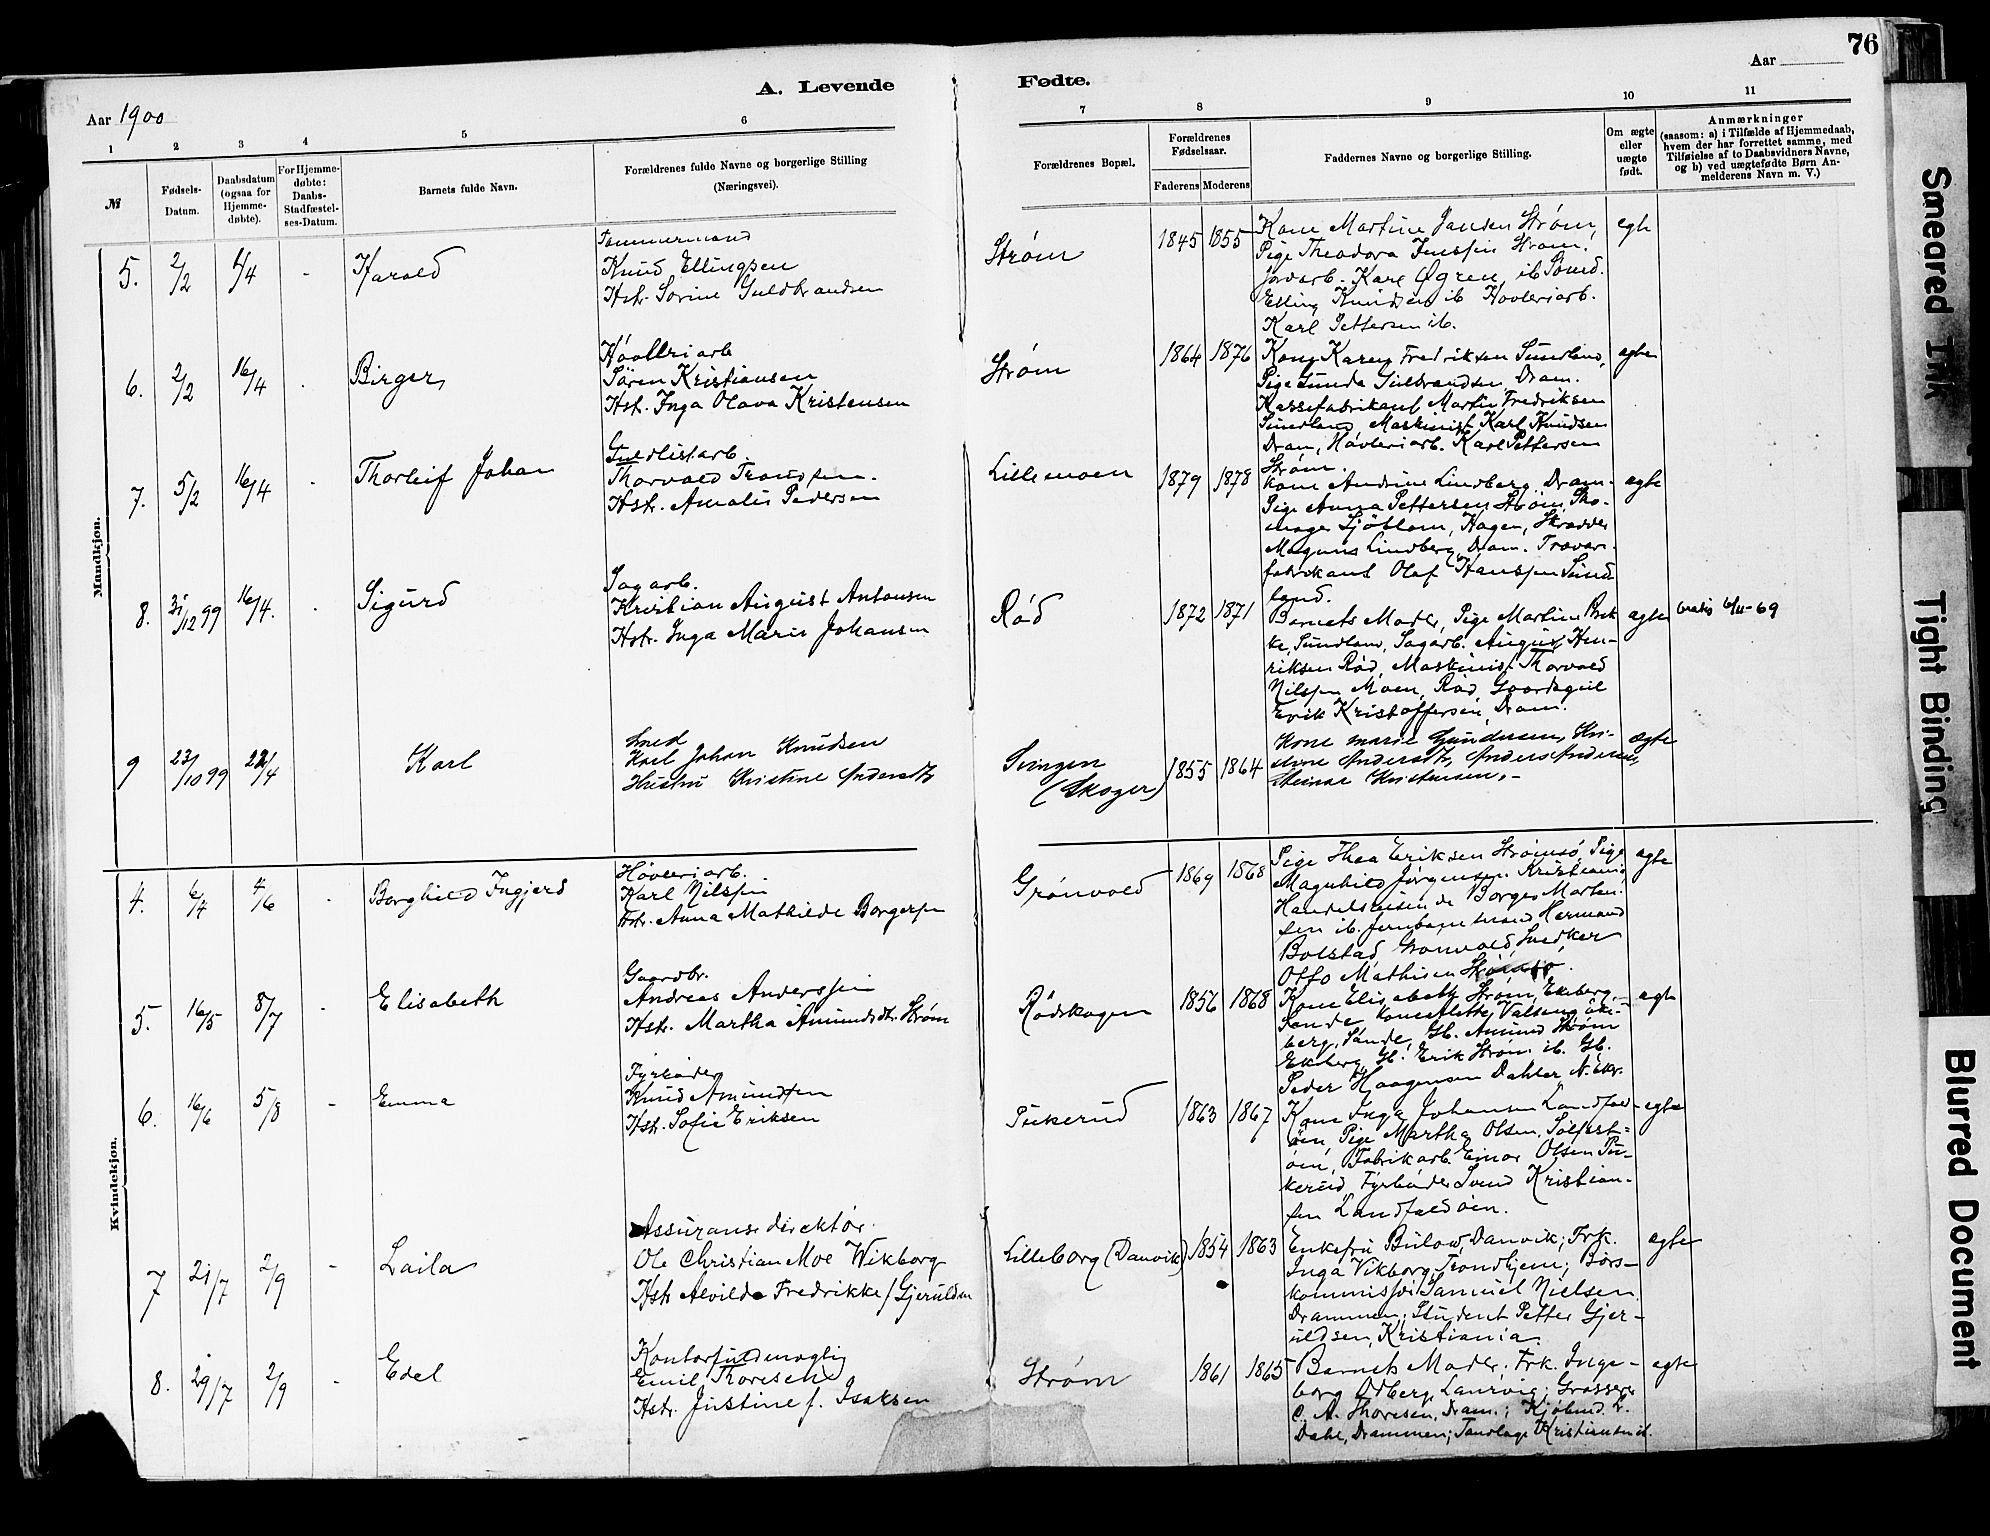 76
A. Levende
Fødte.
Aar 1900
Aar
1 2 3 4 5 6
7 8 9 10 11
№
Fødsels-Datum.
Daabsdatum (ogsaa for Hjemme-døbte).
For Hjemme-døbte: Daabs-Stadfæstel-ses-Datum.
Barnets fulde Navn.
Forældrenes fulde Navne og borgerlige Stilling
(Næringsvei).
Forældrenes Bopæl.
Forældrenes Fødselsaar.
Faderens Moderens
Faddernes Navne og borgerlige Stilling.
Om ægte eller uægte født.
Anmærkninger
(saasom: a) i Tilfælde af Hjemmedaab,
hvem der har forrettet samme, med
Tilføielse af to Daabsvidners Navne,
og b) ved uægtefødte Børn An-
melderens Navn m. V.)
Mandkjøn.
5. 2/2 4/4 - Harald
Tømmermand
Knud Ellingsen
Hstr. Sorine Guldbrandsen
Strøm 1845 1855
Kone Martine Jansen Strøm,
Pige Theodora Jenssen Strøm.
Jovarb. Karl Øgren, ib Smed.
Elling Knudsen ib Høvleriarb.
Karl Pettersen ib.
egte
6. 2/2 16/4 - Birger,
Høvleriarb
Søren Kristiansen
Hst. Inga Olava Kristensen
Strøm 1864 1876
Kone Karen Fredriksen Sundland,
Pige Gunda Gulbrandsen Dram.
Kassefabrikant Martin Fredriksen
Sundland, Maskinist Karl Knudsen
Dram, Høvleriarb. Karl Pettersen
Strøm.
ægte
7. 5/2 16/4 - Thorleif Johan
Guldlistarb.
Thorvald Trondsen.
Hst. Amalie Pedersen
Lillemoen 1879 1878
Kone Andrine Lindberg Dram.
Pige Anna Pettersen Strøm, Sko-
mager Sjöblom, Hagen, Skrædder
Magnus Lindberg Dram. Trævare
fabrikant Olaf Hanssen Sund
land.
ægte
8. 31/12 99 16/4. - Sigurd
Sagarb.
Kristian August Antonsen
Hstr. Inga Marie Johansen
Rød 1872 1871
Barnets Moder, Pige Martine Brek
ke, Sundland, Sagarb. August Hen-
riksen Rød, Maskinist Thorvald
Nilssen Moen, Rød, Gaardsgut
Erik Kristoffersen, Dram.
ægte 6/11-69
9 23/10 99 22/4 Karl
Smed
Karl Johan Knudsen
Hustru Kristine Andersdtr
Svingen
(Skoger) 1855 1864
Kone Marie Gundersen, Kri-
stine Andersdtr, Anders Andersen,
Steinar Kristensen.-
ægte
Kvindekjøn.
4. 6/4 4/6 - Borghild Ingjerd
Høvleriarb.
Karl Nilssen
Hstr. Anna Mathilde Borgersen
Grönvold 1869 1868
Pige Thea Eriksen Strømsø, Pige
Magnhild Jørgensen Kristiania,
Handelsreisende Borger Marten
sen ib. Jernbanemand Hermand
Bolstad Grønvold Snedker
Otto Mathisen Strømsø.
ægte
5. 16/5 8/7 - Elisabeth
Gaardbr.
Andreas Anderssen
Hstr. Martha Amundsdtr. Strøm
Rødskogen 1856 1868
Kone Elisabeth Strøm, Ekeberg,
Sande, Kone Alette Valseng Eke-
berg, Sande, Gb. Amund Strøm
Ekeberg, Gb. Erik Strøm ib. Gb.
Peder Haagensen Dahler N. Eker.
egte
6. 16/6 5/8 - Emma
Fyrbøder
Knud Amundsen
Hst. Sofie Eriksen
Pukerud 1863 1867
Kone Inga Johansen Landfald-
øen, Pige Martha Olsen, Sølfast-
øen, Fabrikarb. Einar Olsen Pu-
kerud, Fyrbøder Svend Kristian-
sen Landfaldøen.
egte
7 21/7 2/9 - Laila
Assuransedirektør.
Ole Christian Moe Wikborg
Hstr Alvilde Fredrikke f Gjeruldsen
Lilleborg (Danvik) 1854 1863
Enkefru Bülow, Danvik; Frk.
Inga Vikborg, Trondhjem; Børs-
kommissær Samuel Nielsen
Drammen; Student Petter Gjer-
uldsen, Kristiania
ægte
8. 29/7 2/9 - Edel
Kontorfuldmægtig
Emil Thoresen
Hstr. Justine f. Isaksen
Strøm 1861 1865
Barnets Moder; Frk. Inge-
borg Odberg, Laurvig; Grosserer
C. A. Thoresen, Dram.; Kjøbmd. L.
Dahl, Drammen; Tandlæge Kristiansen ib.
egte
Smeared Ink
Tight Binding
Blurred Document